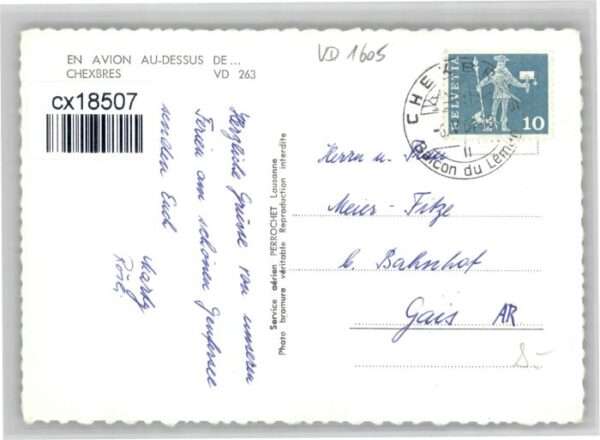 EN AVION AU-DESSUS DE...
CHEXBRES VD 263
VD 1605
cx18507
Herzliche Grüsse von unseren
Ferien am schönen Genfersee
senden Euch
Rösli
Service aérien PERROCHET Lausanne
Photo bromure véritable Reproduction interdite
HELVETIA
10
CHE
Balcon du Lém
Herrn u.
Meier-Fitze
b. Bahnhof
Gais AR